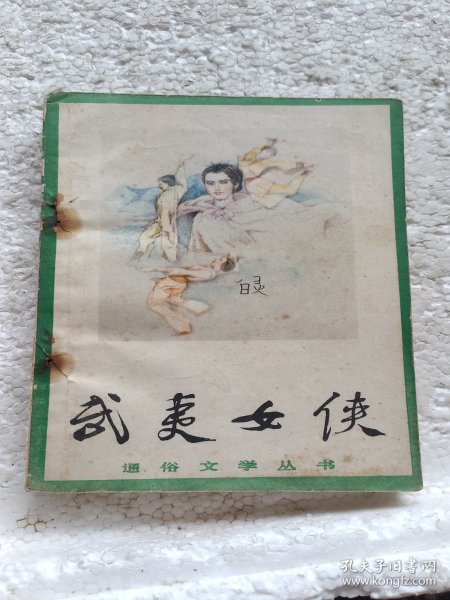 白灵
武夷女侠
通俗文学丛书
孔夫子旧书网
www.kongfz.com